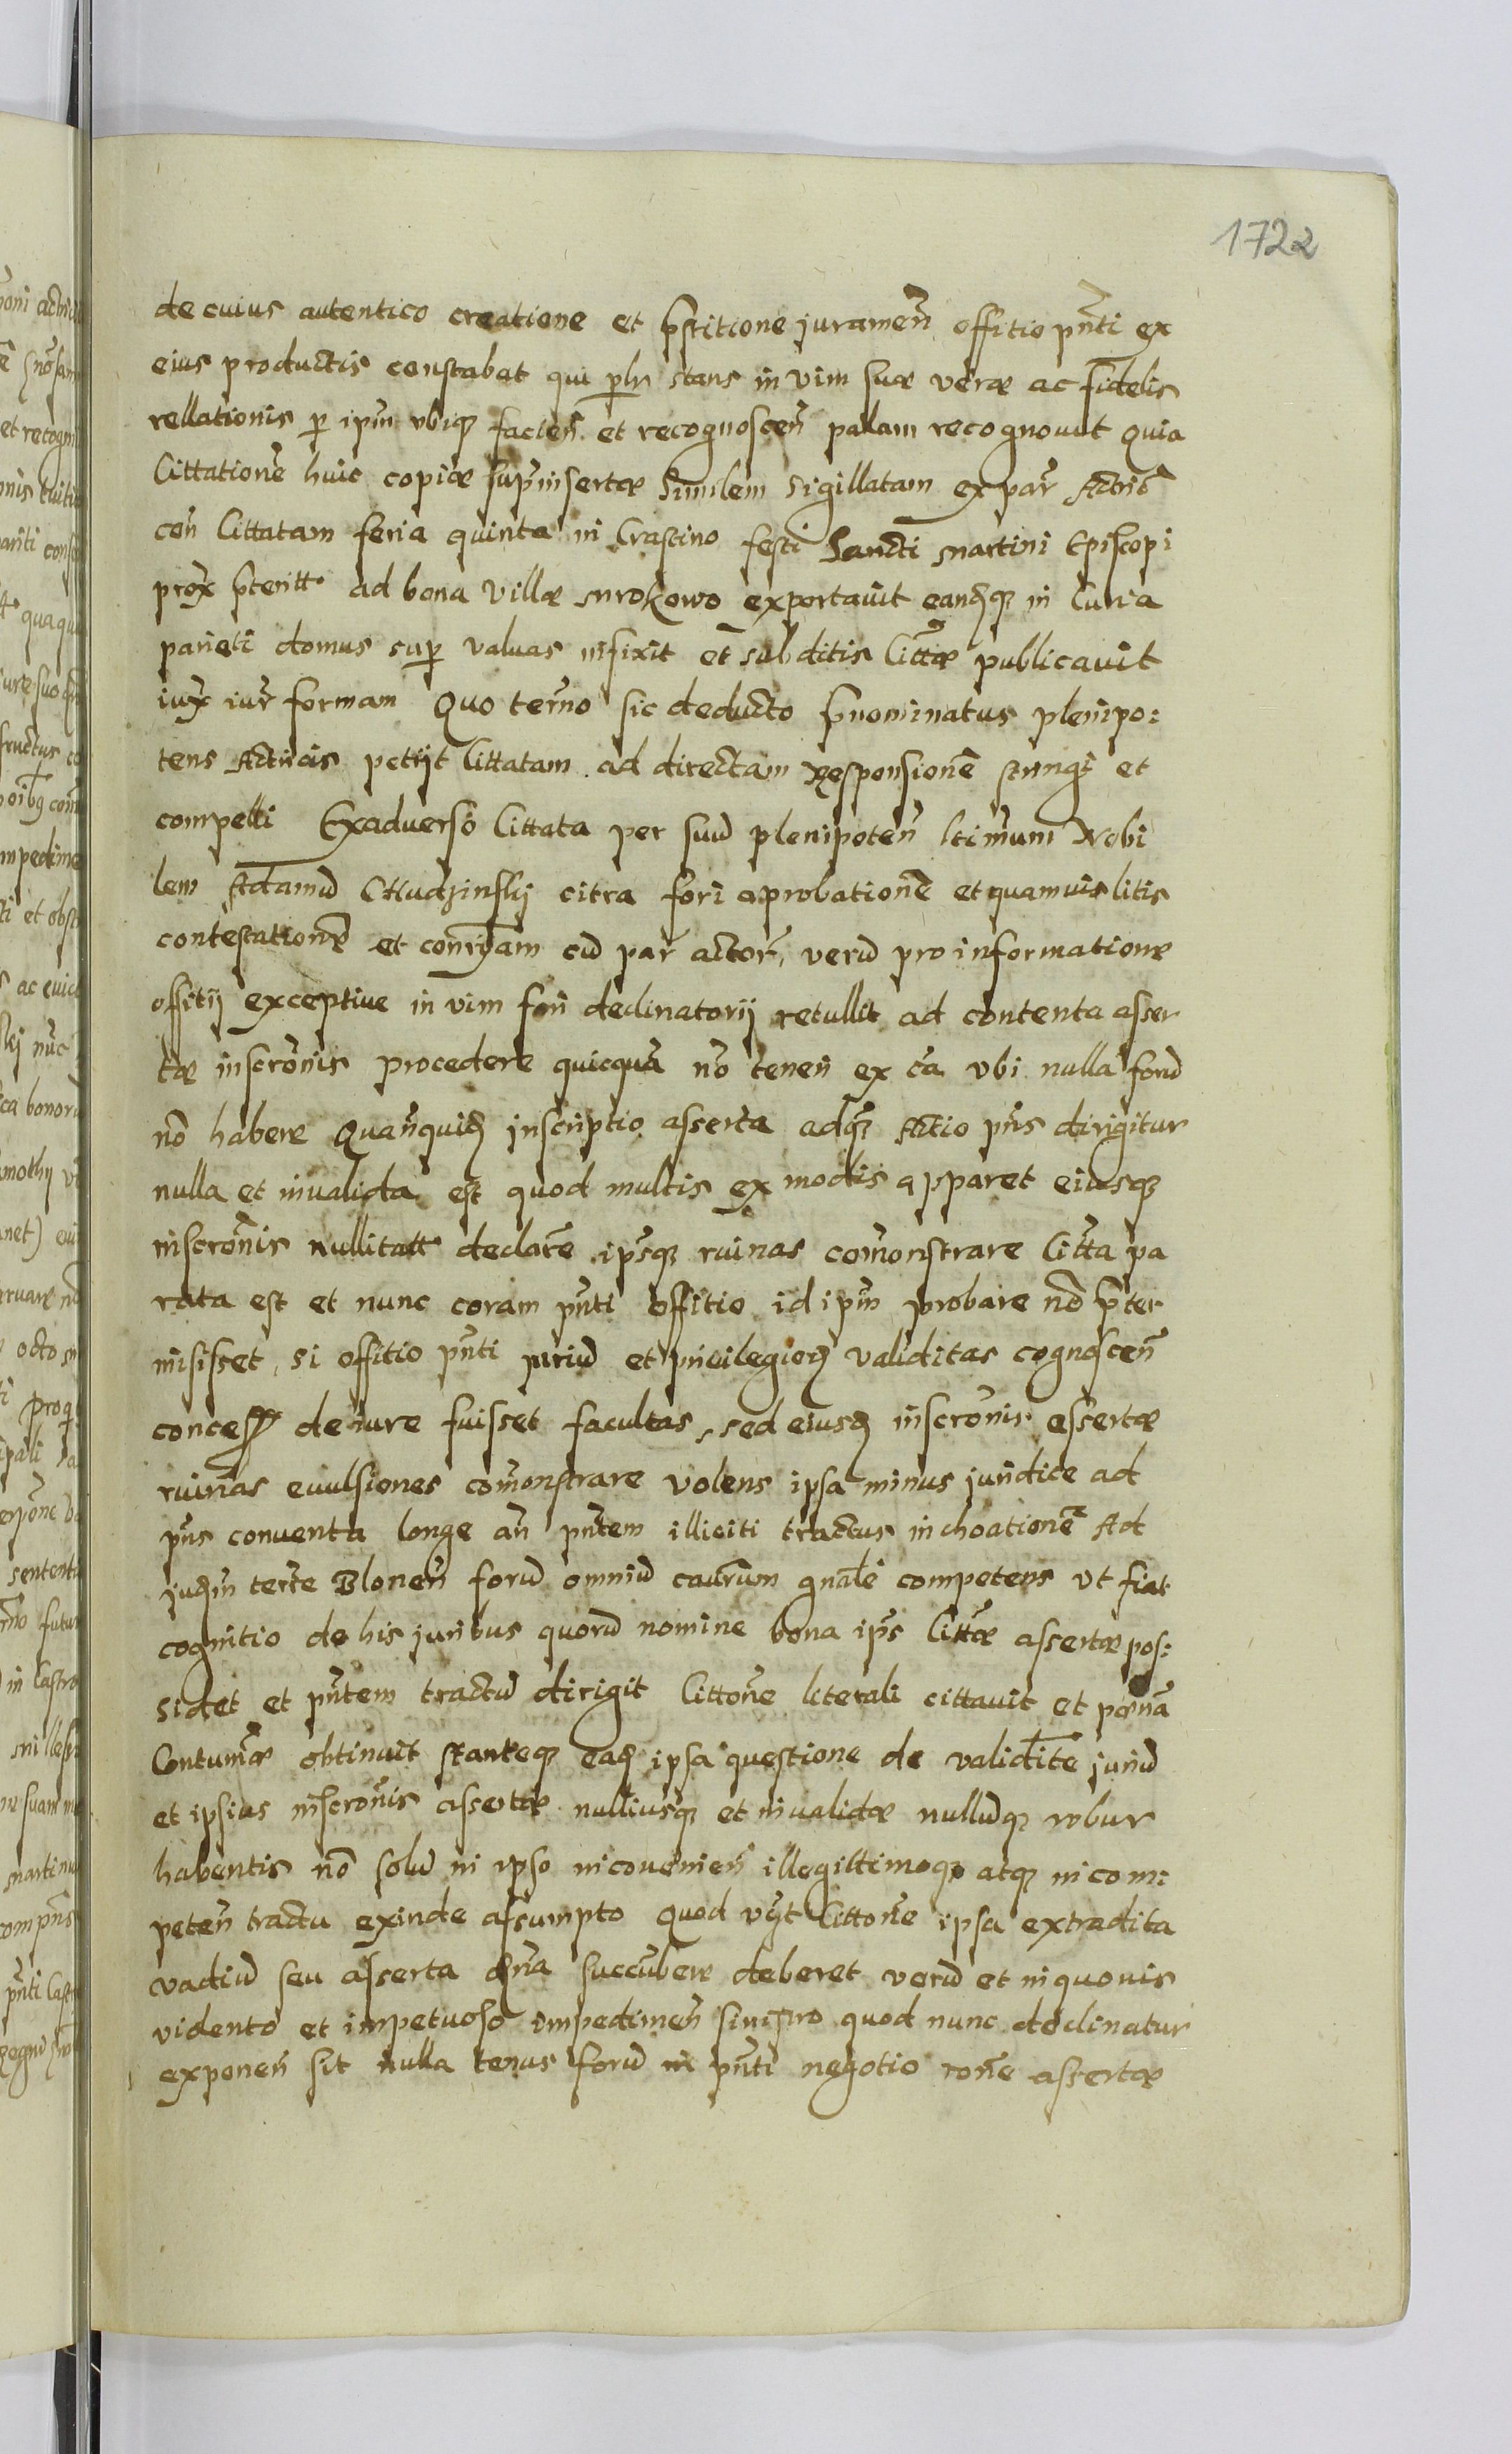 1722
de cuius autentico creatione et p̃stitione juramen̄ offitio pñti ex
eius productis constabat qui p̱lr stans in vim suæ veræ ac fidelis
rellationis p̱ ipm̃ vbiqȝ facien̄ et recognoscen̄ palam recognouit Quia
Cittationẽ huic copiæ sup̱insertæ Similem Sigillatam ex par̃ Actric̃
con̄ Cittatam feria quinta in Crastino festi Sancti Martini Episcopi
prox̃ p̃teritt ad bona Villæ Mrokowo exportavit eandȝqȝ in Curia
parieti domus sup̱ valuas infixit et subditis Citt̃æ publicavit
iux̃ iur̃ formam Quo ter̃no sic deducto p̃nominatus plenipo:
tens Actricis petijt Cittatam ad directam Responsionẽ stringi et
compelli Exaduerso Cittata per suũ plenipoten̄ ltimum Nobi
lem Adamũ Chudzinskj citra fori aprobationẽ et quamuis litis
contestationẽ et con̄r̃giam cũ par̃ actor̃, verũ pro informatione
offitij exceptiue in vim fori declinatorij retullit ad contenta asser
tæ inscrõnis procedere quicquã nõ tenen̄ ex cã vbi nulla forũ
nõ habere Quanquidȝ inscriptio asserta adqȝ Actio pñs dirigitur
nulla et invalida est quod multis ex modis apparet eiusqȝ
inscrõnis nullitatt declarẽ ipsqȝ ruinas comõnstrare Citt̃a pa
rata est et nunc coram pñti offitio id ipm̃ probare nõ p̃ter
misisset, si offitio pñti juriũ et priuilegiorȝ validitas cognoscen̄
concess̃ de iure fuisset facultas, sed eiusdȝ inscrõnis assertæ
ruinas euulsiones comõnstrare volens ipsa minus juridice ad
pñs conventa longe an̄ pñtem illiciti tractus inchoationẽ Ad
judȝm̃ terr̃e Blonen̄ forũ omniũ causarum gnãle competens vt fiat
cognitio de his juribus quorũ nomine bona ips̃ Citt̃æ assertæ pos:
sidet et pñtem tractũ dirigit Cittõne literali cittavit et pœnã
Contum̃æ obtinuit stanteqȝ eadȝ ipsa questione de validit̃te juriũ
et ipsius inscrõnis assertæ nulliusqȝ et invalidæ nullũqȝ robur
habentis nõ solũ in ipso inconvenien̄ illegittimoqȝ atqȝ incom:
peten̄ tractu exinde assumpto quod vȝt Cittõne ipsa extradita
vadiũ seu asserta dña succũbere deberet verũ et in quouis
vidento et impetuoso impedimen̄ sinistro quod nunc declinatur
exponen̄ sit nulla tenus forũ in pñti negotio rõne assertæ